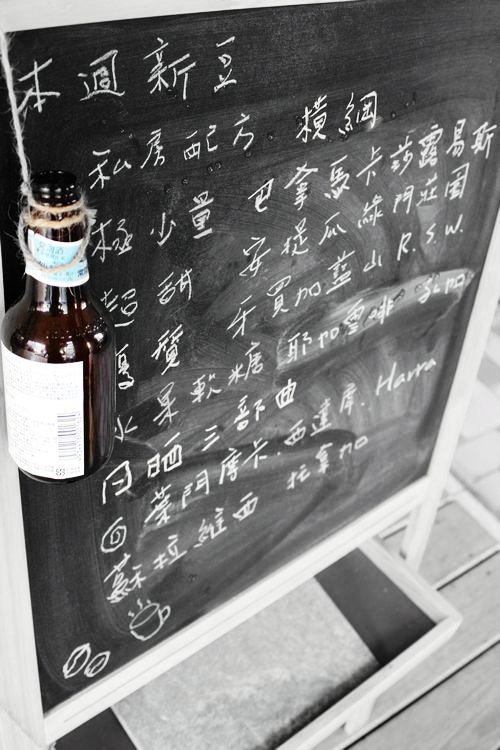 本週新豆
私房配方 橫綱
極少量 巴拿馬卡莎露易斯
超甜 安提瓜綠門莊園
優質 牙買加藍山 R.S.W.
水果軟糖 耶加雪啡
日晒三部曲
葉門摩卡.西達摩. Harra
蘇拉維西 托拿加